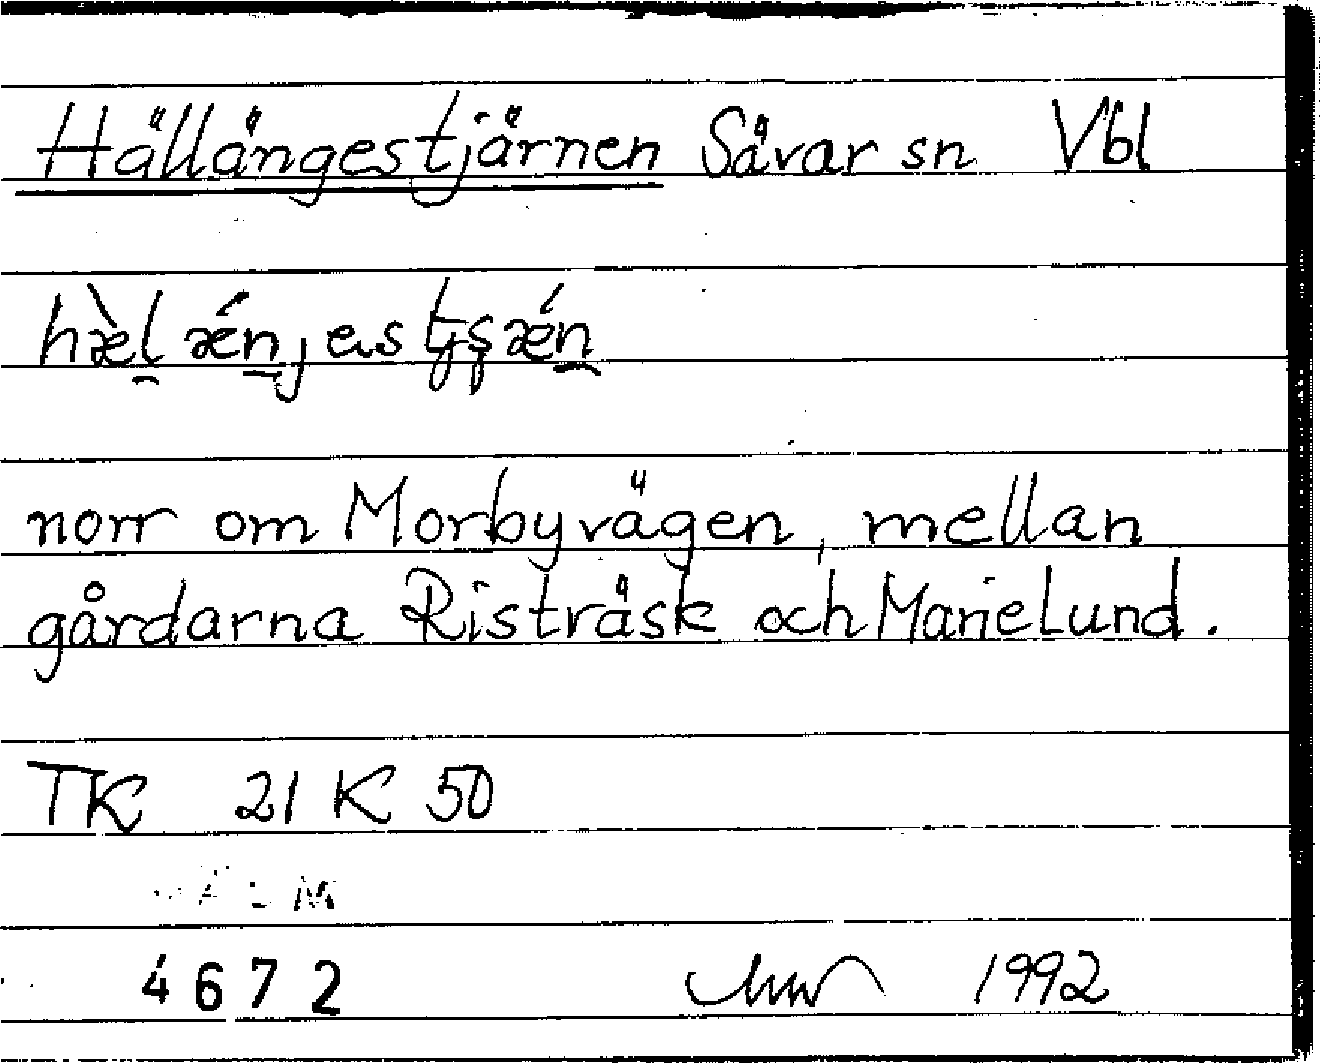 Hällängestjärnen Sävar sn Vbl
norr om Morbyvägen, mellan
gårdarna Risträsk och Marielund.
TK 21 K 50
4672 1992